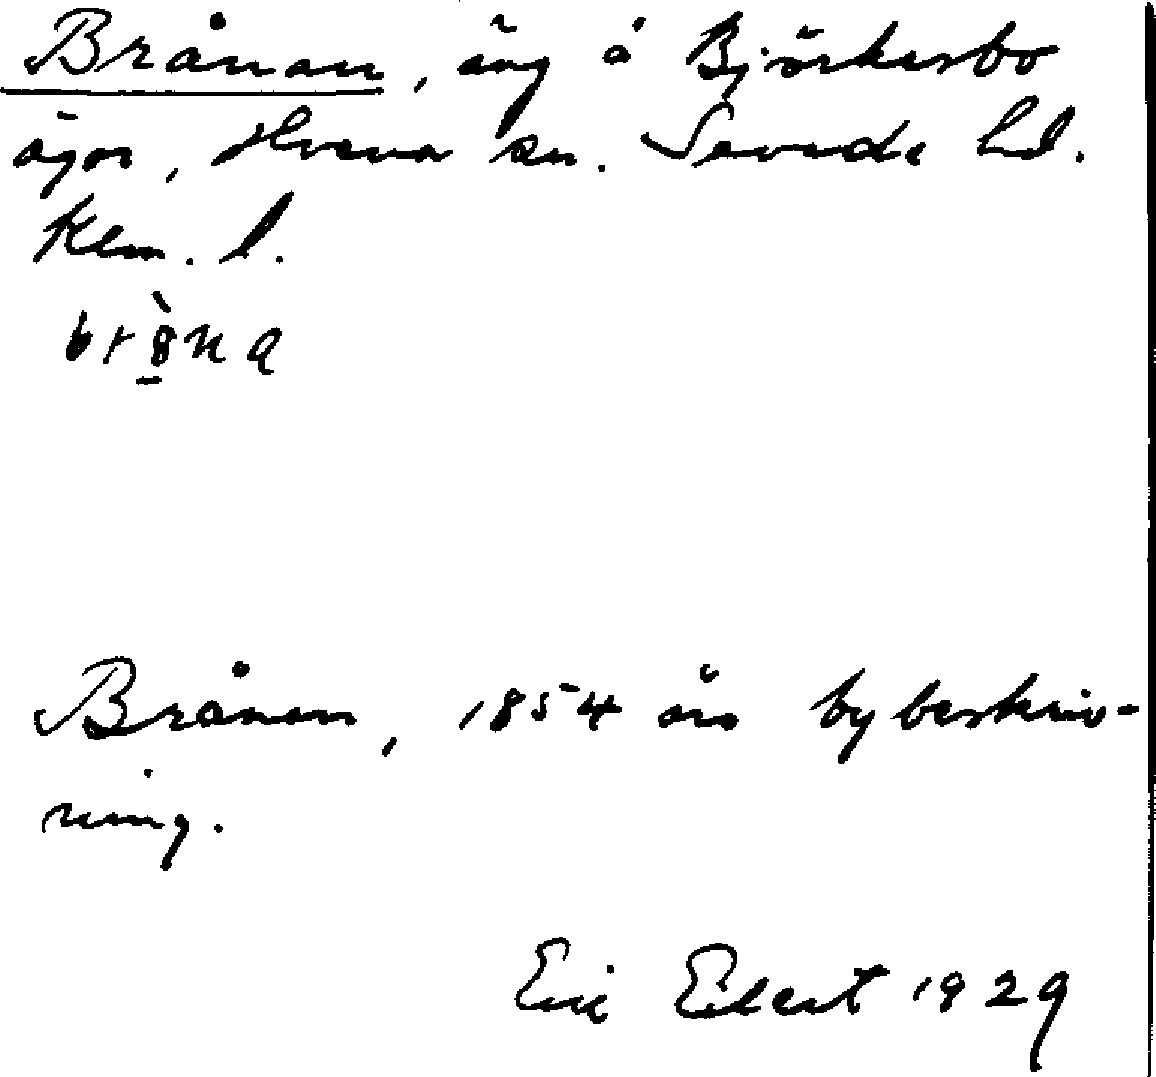 Brånan, äng å Björkesbo
ägor, Hvena sn. Sevede hd.
Klm. l.
Brånan, 1854 års bybeskriv-
ning.
Eric Edert 1929